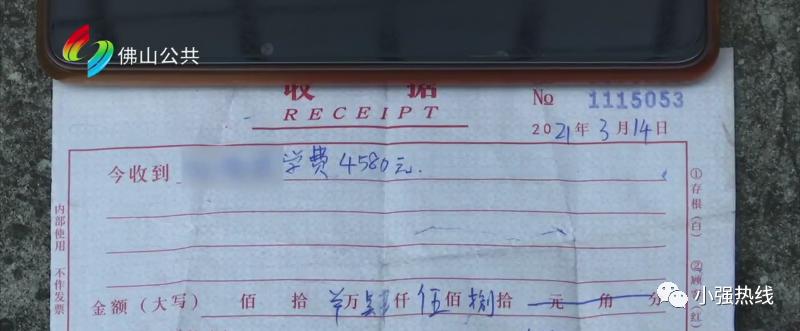 佛山公共
收 据
RECEIPT
№ 1115053
2021年3月14日
今收到 学费4580元.
①存根(白)
内部使用 不作发票
②顾 红)
金额(大写) 佰 拾 万 仟 伍佰 捌拾 元 角 分
小强热线